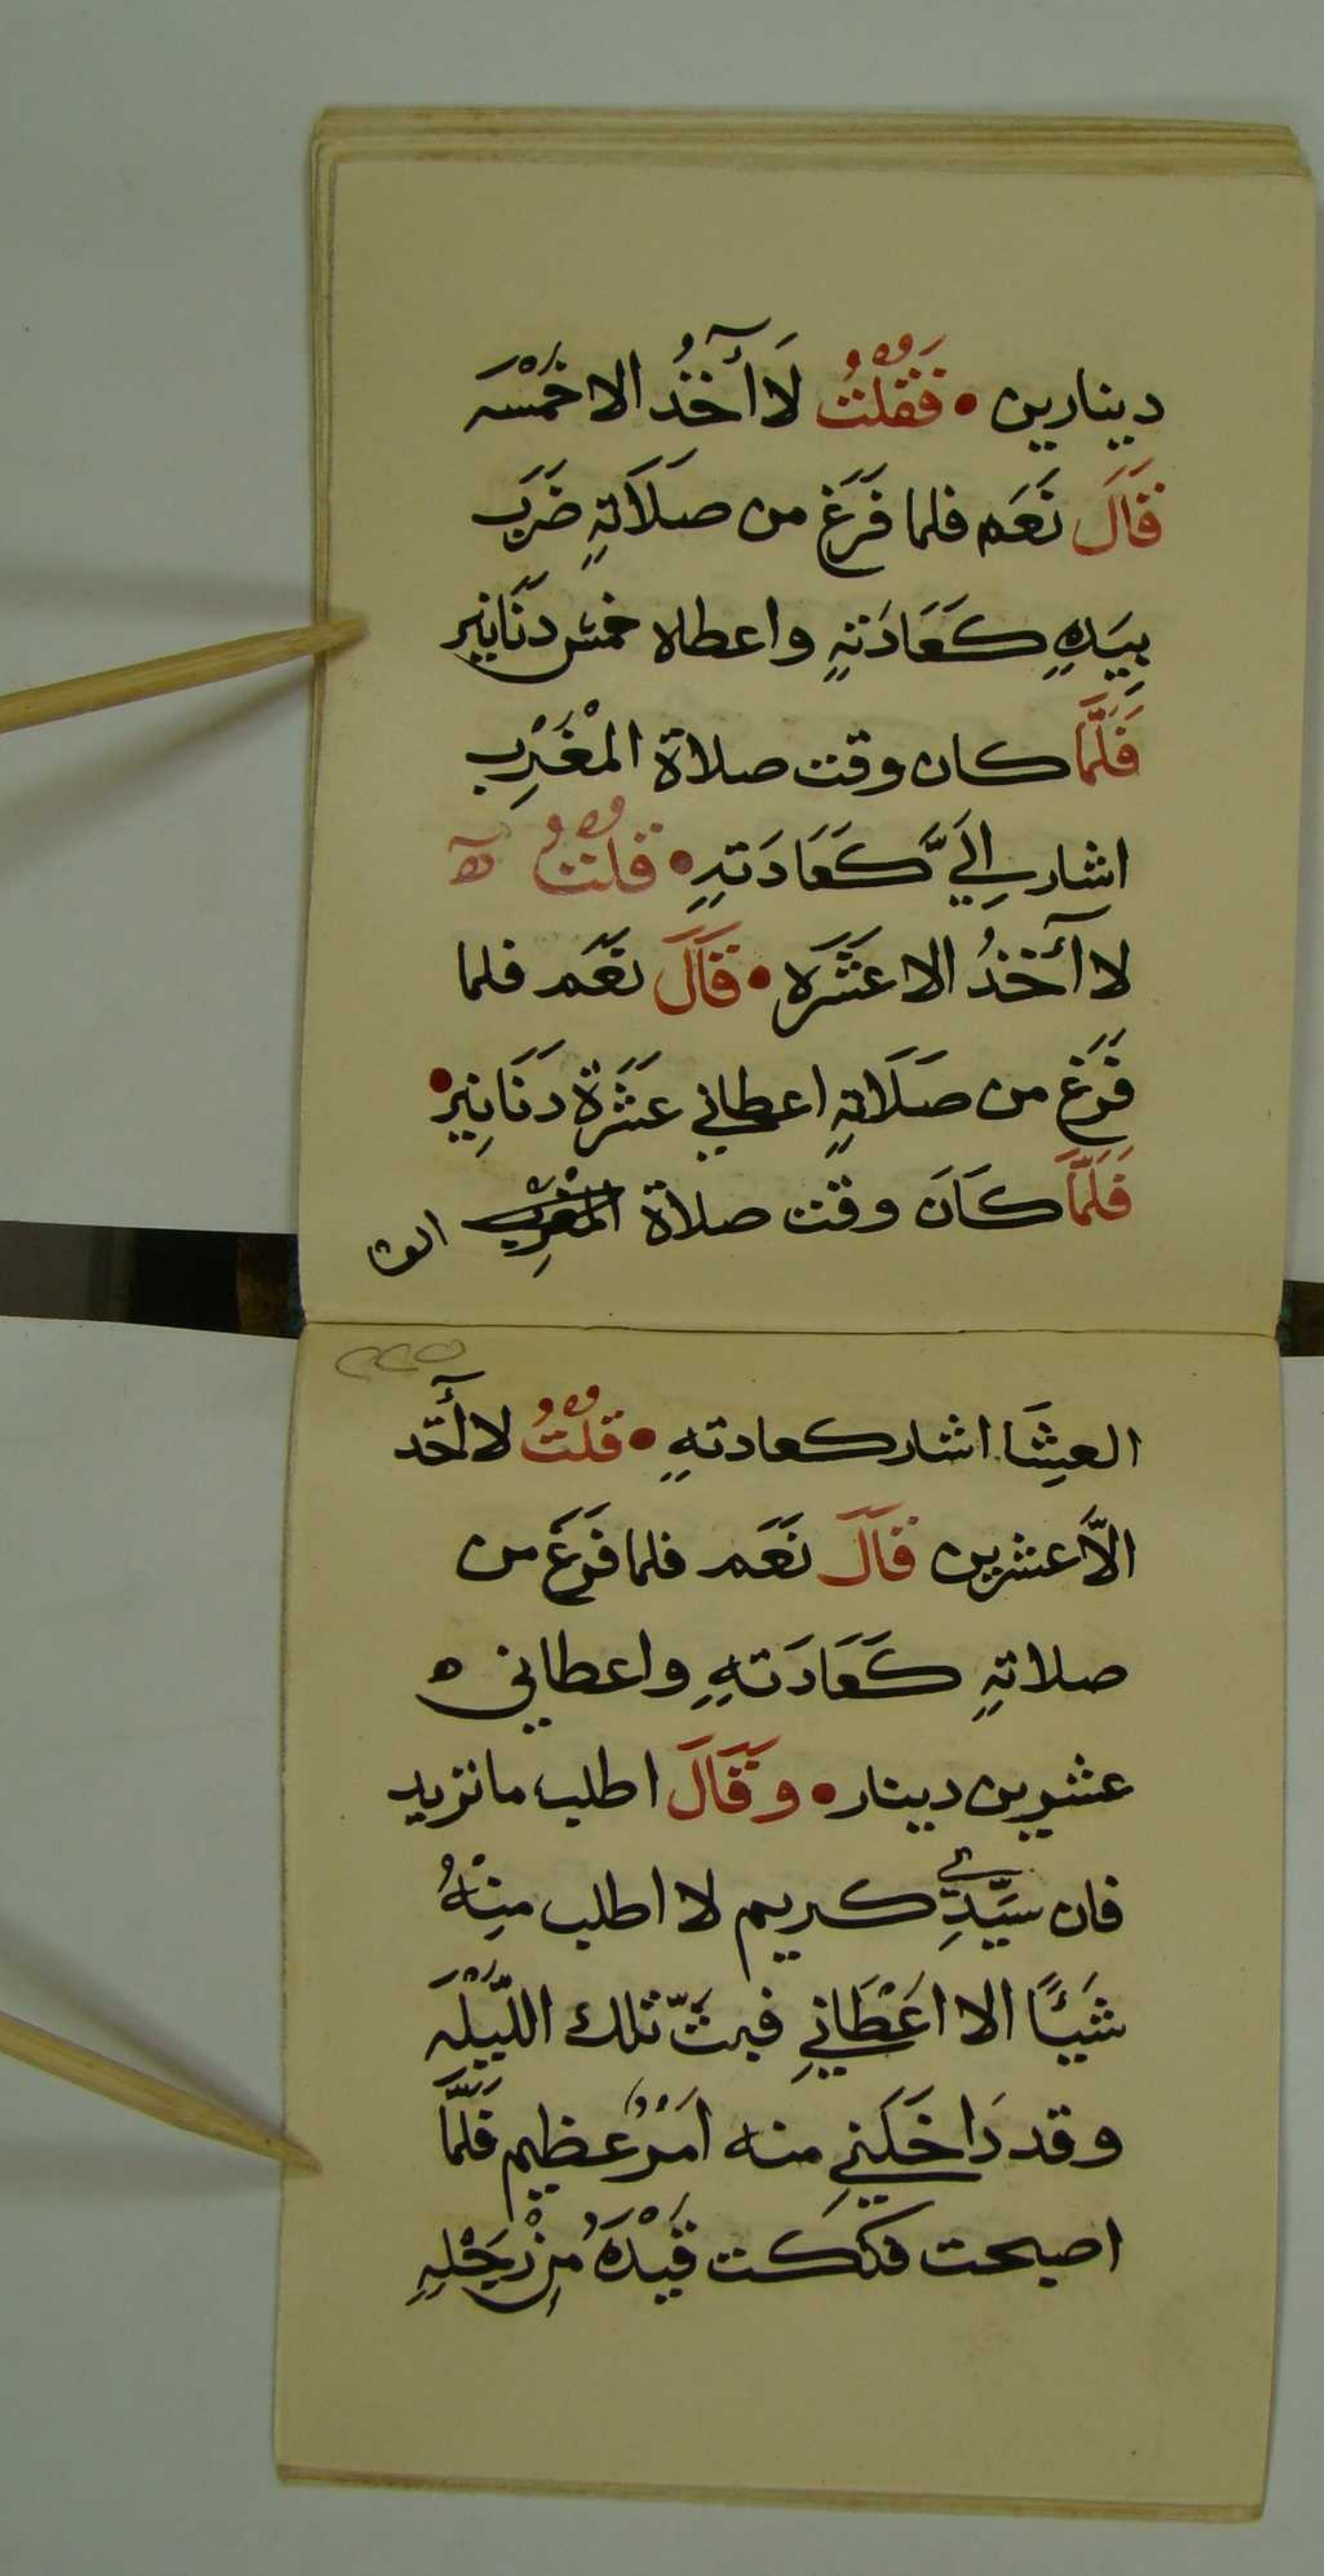 دينارين • فَقُلْتُ لَا أآخُذُ الا خَمْسَه
قَالَ نَعَم فلما فَرَغ من صلَاَتهِ ضَرَب
بِيَدِهِ كَعَادَتهِ واعطاه خمس دنَانير
فَلَمَّا كان وقت صلاة المْغْرِب
اشار الِيَّ كَعَادَتهِ • قلتُ
لا أآخذُ الا عَشَره • قَالَ نعَم فلما
فَرَغ من صَلَاتهِ اعطاني عَشَرَة دَنَانِير •
فَلَمَّا كَانَ وقت صلاة المغْرِب العشا
العِشَا اشار كعادتهِ • قلْتُ لا أآخد
الاَّ عشرين قَالَ نَعَم فلما فَرَغ من
صلاتهِ كَعَادَتهِ واعطاني ه
عشرين دينار • وقَالَ اطلب ما تريد
فان سَيِّدِي كريم لا اطلب مِنْهُ
شَيْئًا الا اعَطَاني فبتّ تلك اللّيْلَه
وقد دَاخَلَنِي منه امَرٌ عظيم فَلَمَّا
اصبحت فككت قَيْدَهُ مِنْ رِجْلِهِ